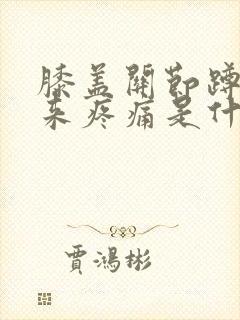 膝盖關節蹲
来疼痛是什
賈鴻彬